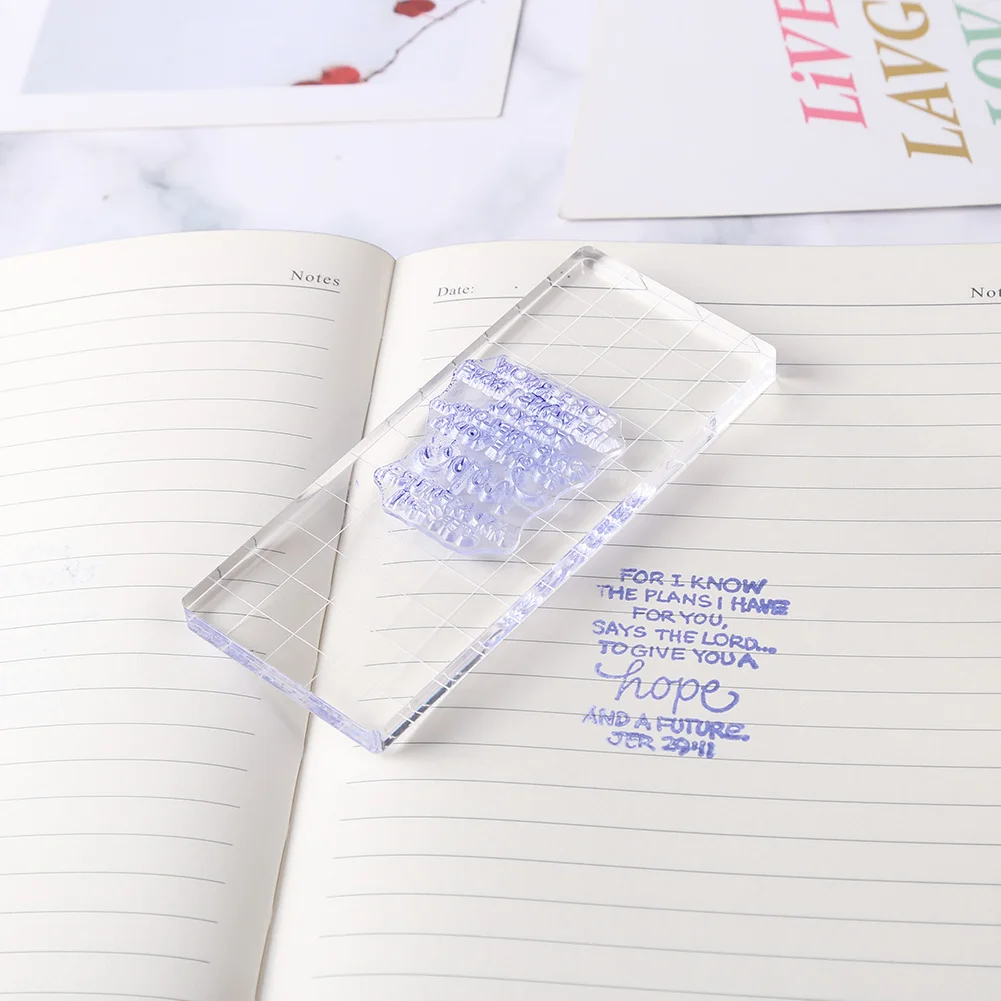 LiVE
LAVG
LOV
Notes
Date:
Not
FOR I KNOW
THE PLANS I HAVE
FOR YOU,
SAYS THE LORD...
TO GIVE YOU A
hope
AND A FUTURE.
JER 29:11